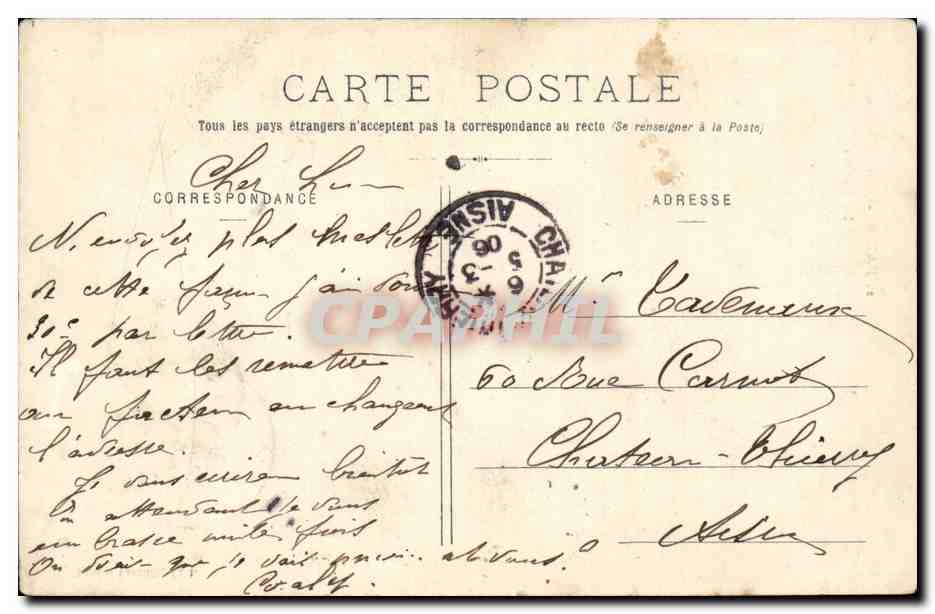 CARTE POSTALE
Tous les pays étrangers n'acceptent pas la correspondance au recto (Se renseigner à la Poste)
CORRESPONDANCE
ADRESSE
Cher
N'envoyez plus les lettres
de cette façon j'ai
30c par lettre.
Il faut les remettre
au facteur en changeant
l'adresse.
Je vous écrirai bientôt
En attendant je vous
embrasse mille fois
On dirait que je
CHA THIERRY AISNE
6 - 3
5 06
CPAPHIL
Mr Tavernaux
60 Rue Carnot
Chateau-Thierry
Aisne